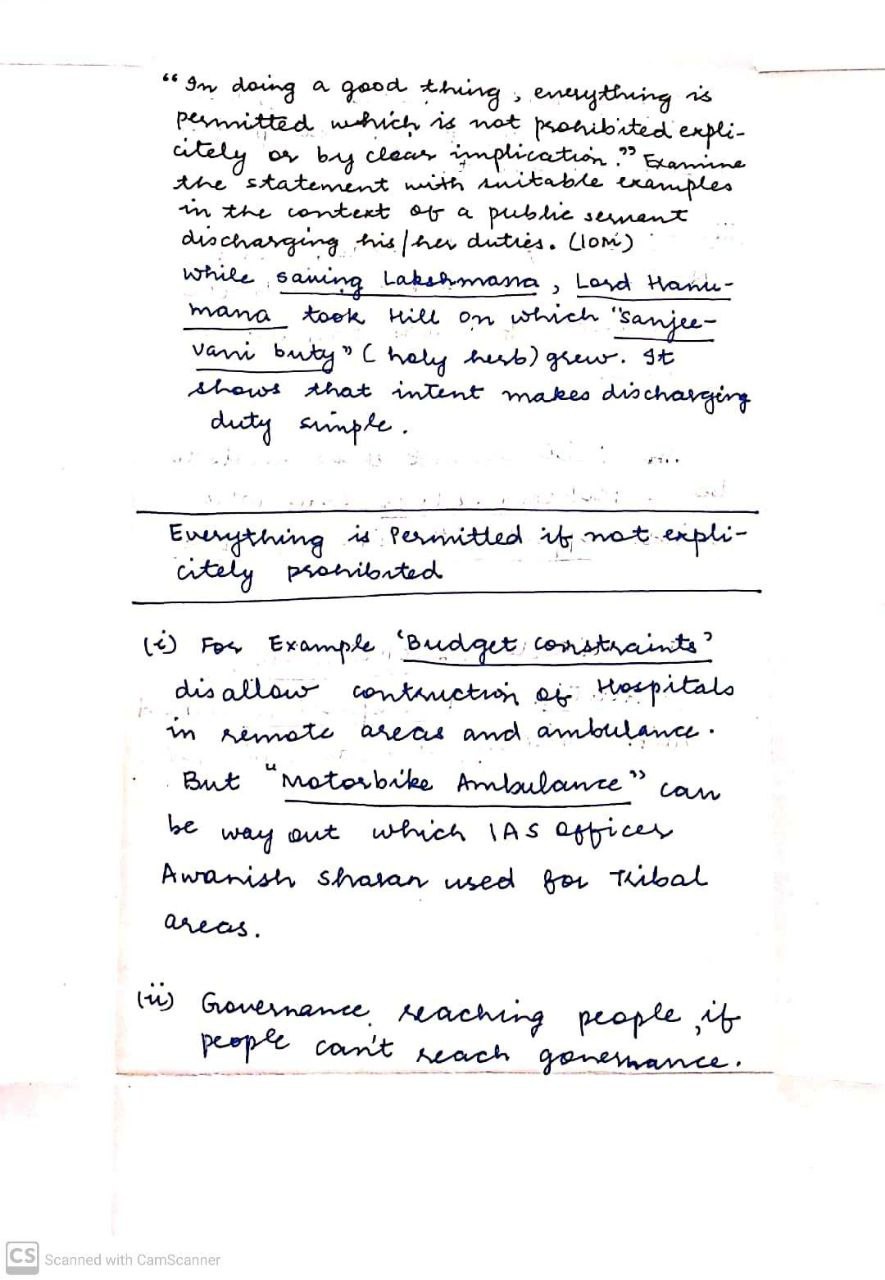 “In doing a good thing, everything is
permitted which is not prohibited expli-
citely or by clear implication.” Examine
the statement with suitable examples
in the context of a public servant
discharging his/her duties. (10M)
While saving Lakshmana, Lord Hanu-
mana took Hill on which "Sanjee-
vani buty" (holy herb) grew. It
shows that intent makes discharging
duty simple.
Everything is Permitted if not expli-
citely prohibited
(i) For Example, 'Budget constraints'
disallow contruction of Hospitals
in remote areas and ambulance.
But "Motorbike Ambulance" can
be way out which IAS officer
Awanish Sharan used for Tribal
areas.
(ii) Governance reaching people, if
people can't reach governance.
CS Scanned with CamScanner